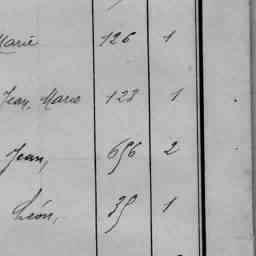 Marie 126 1
Jean, Marie 128 1
Jean, 656 2
Léon, 35 1